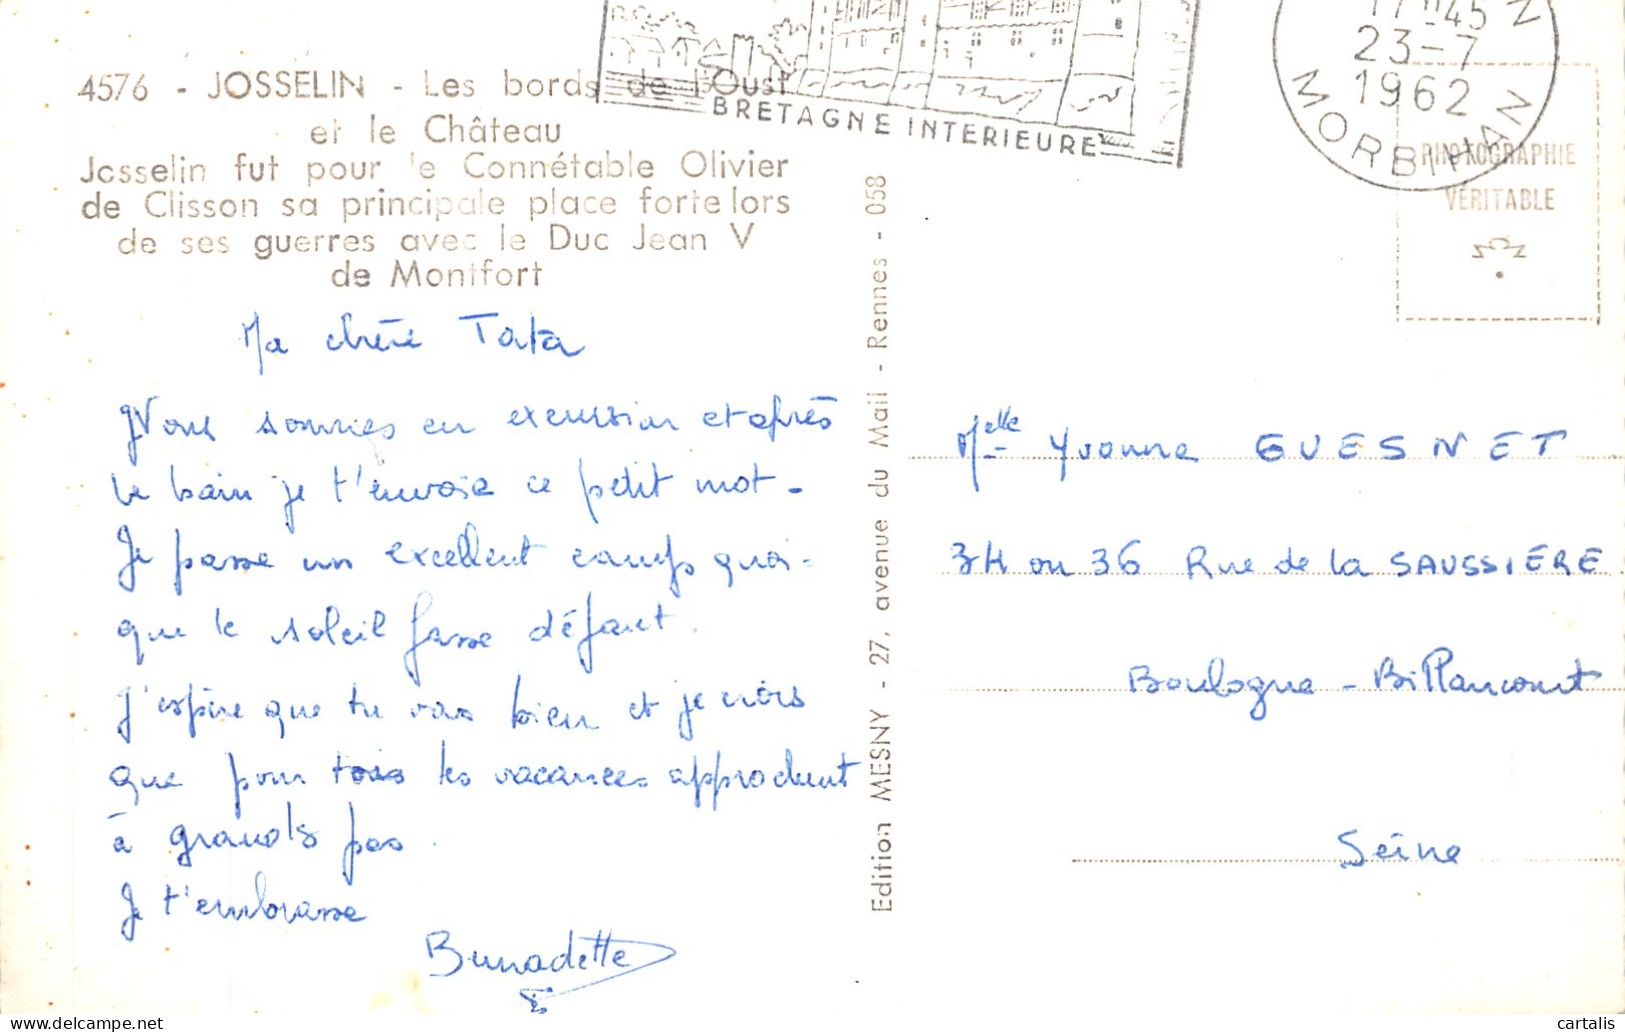 4576 - JOSSELIN - Les bords de l'Oust
et le Château
Josselin fut pour le Connétable Olivier
de Clisson sa principale place forte lors
de ses guerres avec le Duc Jean V
de Montfort
BRETAGNE INTERIEURE
17H45
23-7
1962
MORBIHAN
PHOTOGRAPHIE
VÉRITABLE
Ma chère Tata
Nous sommes en excursion et après
le bain je t'envoie ce petit mot -
Je passe un excellent camp quoi-
que le soleil fasse défaut.
J'espère que tu vas bien et je crois
que pour tous les vacances approchent
à grands pas.
Je t'embrasse
Bernadette
Edition MESNY - 27, avenue du Mail - Rennes - 058
Melle Yvonne GUESNET
34 ou 36 Rue de la SAUSSIÈRE
Boulogne - Billancourt
Seine
cartalis